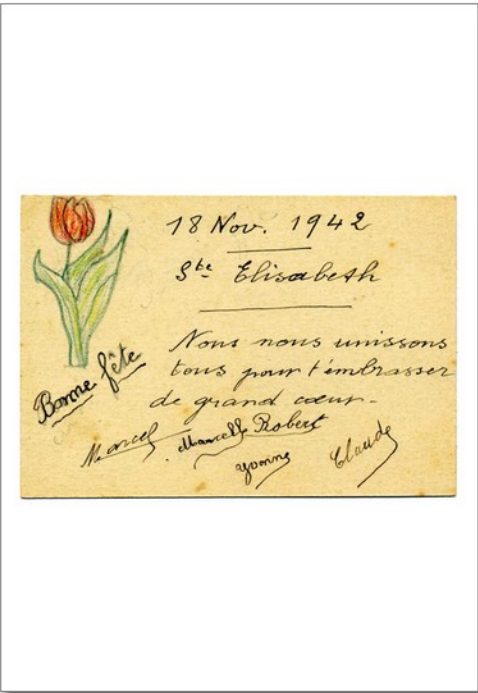 18 Nov. 1942
Ste Elisabeth
Nous nous unissons
tous pour t'embrasser
de grand cœur.
Bonne fête
Marcel Marcelle Robert
Yvonne Claude